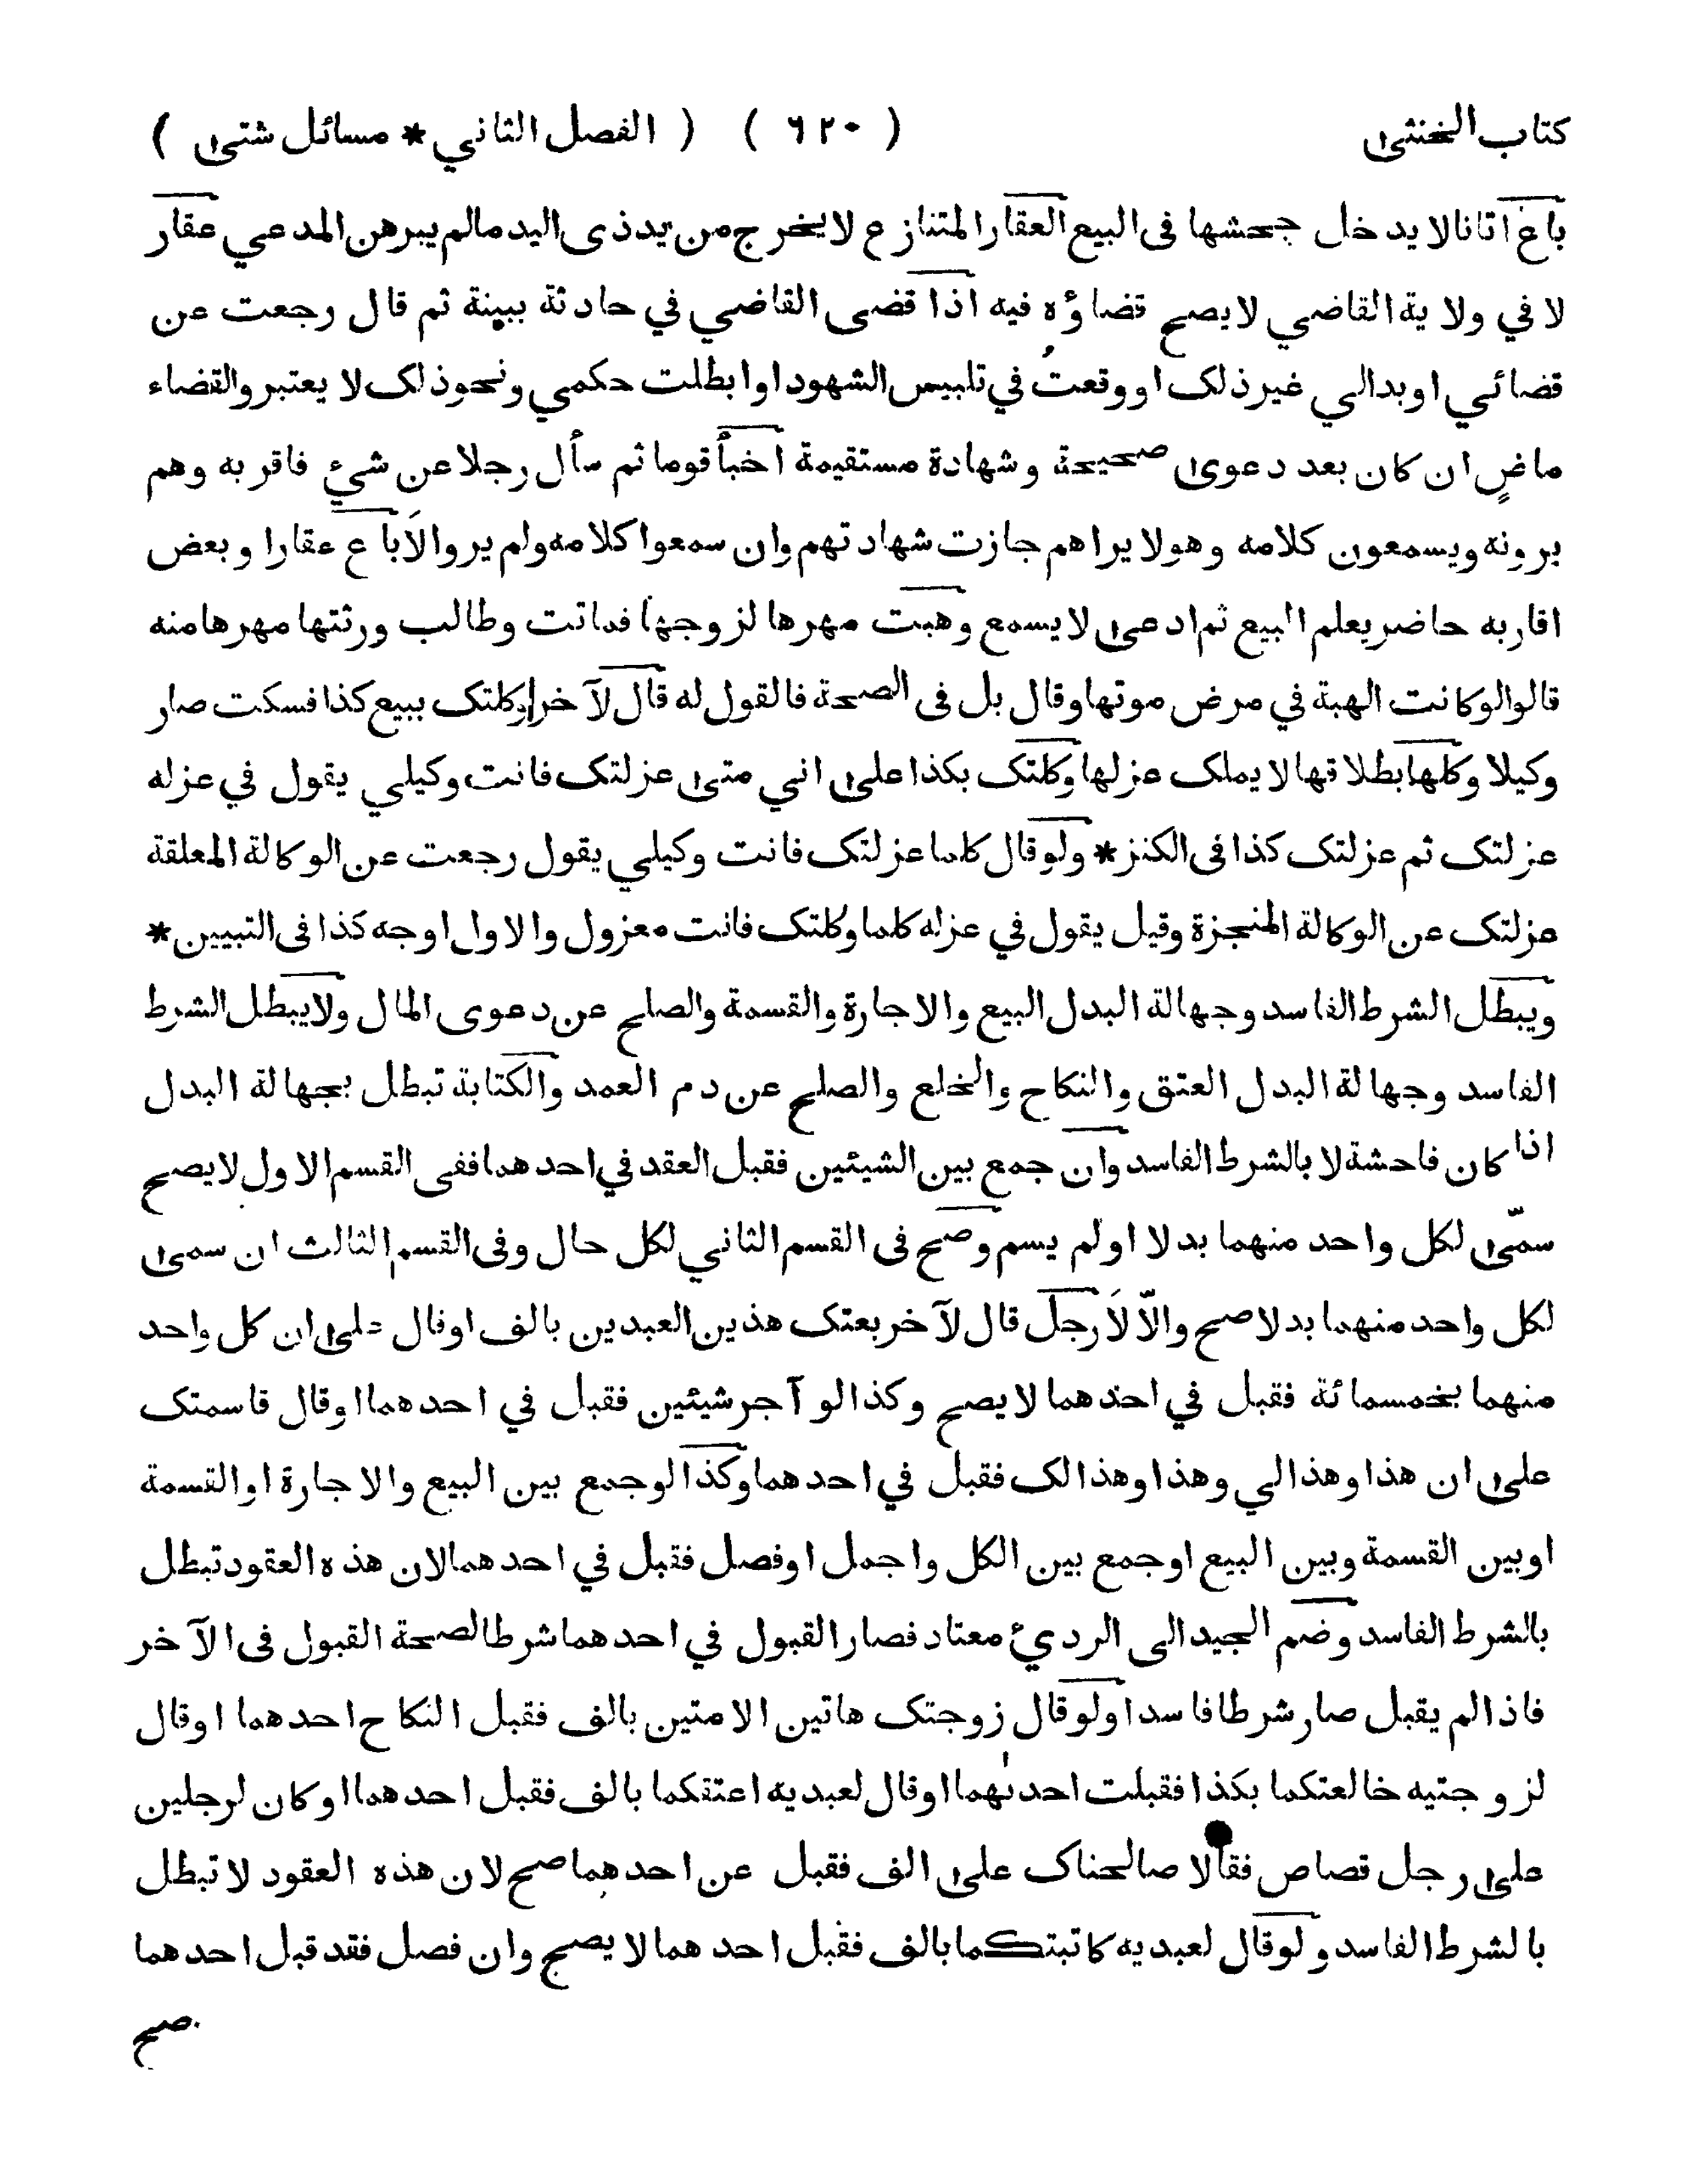 كتاب الخنثى ( ٦٢٠ ) ( الفصل الثاني * مسائل شتى )
باع اتانا لا يدخل جحشها فى البيع العقار المتنازع لا يخرج من يد ذى اليد مالم يبرهن المدعي عقار
لا في ولاية القاضي لا يصح قضاؤه فيه اذا قضى القاضي في حادثة ببينة ثم قال رجعت عن
قضائي او بدالي غير ذلك او وقعت في تلبيس الشهود او ابطلت حكمي ونحو ذلك لا يعتبر والقضاء
ماضٍ ان كان بعد دعوى صحيحة وشهادة مستقيمة اخبأ قوما ثم سأل رجلا عن شيء فاقر به وهم
يرونه ويسمعون كلامه وهو لا يراهم جازت شهادتهم وان سمعوا كلامه ولم يروا لَا باع عقارا وبعض
اقاربه حاضر يعلم البيع ثم ادعى لا يسمع وهبت مهرها لزوجها فماتت وطالب ورثتها مهرها منه
قالوا لو كانت الهبة في مرض موتها وقال بل فى الصحة فالقول له قال لآخر وكلتك ببيع كذا فسكت صار
وكيلا وكلها بطلاقها لا يملك عزلها وكلتك بكذا على اني متى عزلتك فانت وكيلي يقول في عزله
عزلتك ثم عزلتك كذا فى الكنز * ولو قال كلما عزلتك فانت وكيلي يقول رجعت عن الوكالة المعلقة
عزلتك عن الوكالة المنجزة وقيل يقول في عزله كلما وكلتك فانت معزول والاول اوجه كذا فى التبيين *
ويبطل الشرط الفاسد وجهالة البدل البيع والاجارة والقسمة والصلح عن دعوى المال ولا يبطل الشرط
الفاسد وجهالة البدل العتق والنكاح والخلع والصلح عن دم العمد والكتابة تبطل بجهالة البدل
اذا كان فاحشة لا بالشرط الفاسد وان جمع بين الشيئين فقبل العقد في احدهما ففى القسم الاول لا يصح
سمّى لكل واحد منهما بدلا اولم يسم وصح فى القسم الثاني لكل حال وفى القسم الثالث ان سمى
لكل واحد منهما بدلا صح والّا لَا رجل قال لآخر بعتك هذين العبدين بالف او قال على ان كل واحد
منهما بخمسمائة فقبل في احدهما لا يصح وكذا لو آجر شيئين فقبل في احدهما او قال قاسمتك
على ان هذا وهذا لي وهذا وهذا لك فقبل في احدهما وكذا لو جمع بين البيع والاجارة او القسمة
او بين القسمة وبين البيع او جمع بين الكل واجمل او فصل فقبل في احدهما لان هذه العقود تبطل
بالشرط الفاسد وضم الجيد الى الرديء معتاد فصار القبول في احدهما شرطا لصحة القبول فى الآخر
فاذا لم يقبل صار شرطا فاسدا ولو قال زوجتك هاتين الامتين بالف فقبل النكاح احدهما او قال
لزوجتيه خالعتكما بكذا فقبلت احدىهما او قال لعبديه اعتقكما بالف فقبل احدهما او كان لرجلين
على رجل قصاص فقالا صالحناك على الف فقبل عن احدهما صح لان هذه العقود لا تبطل
بالشرط الفاسد ولو قال لعبديه كاتبتكما بالف فقبل احدهما لا يصح وان فصل فقد قبل احدهما
صح